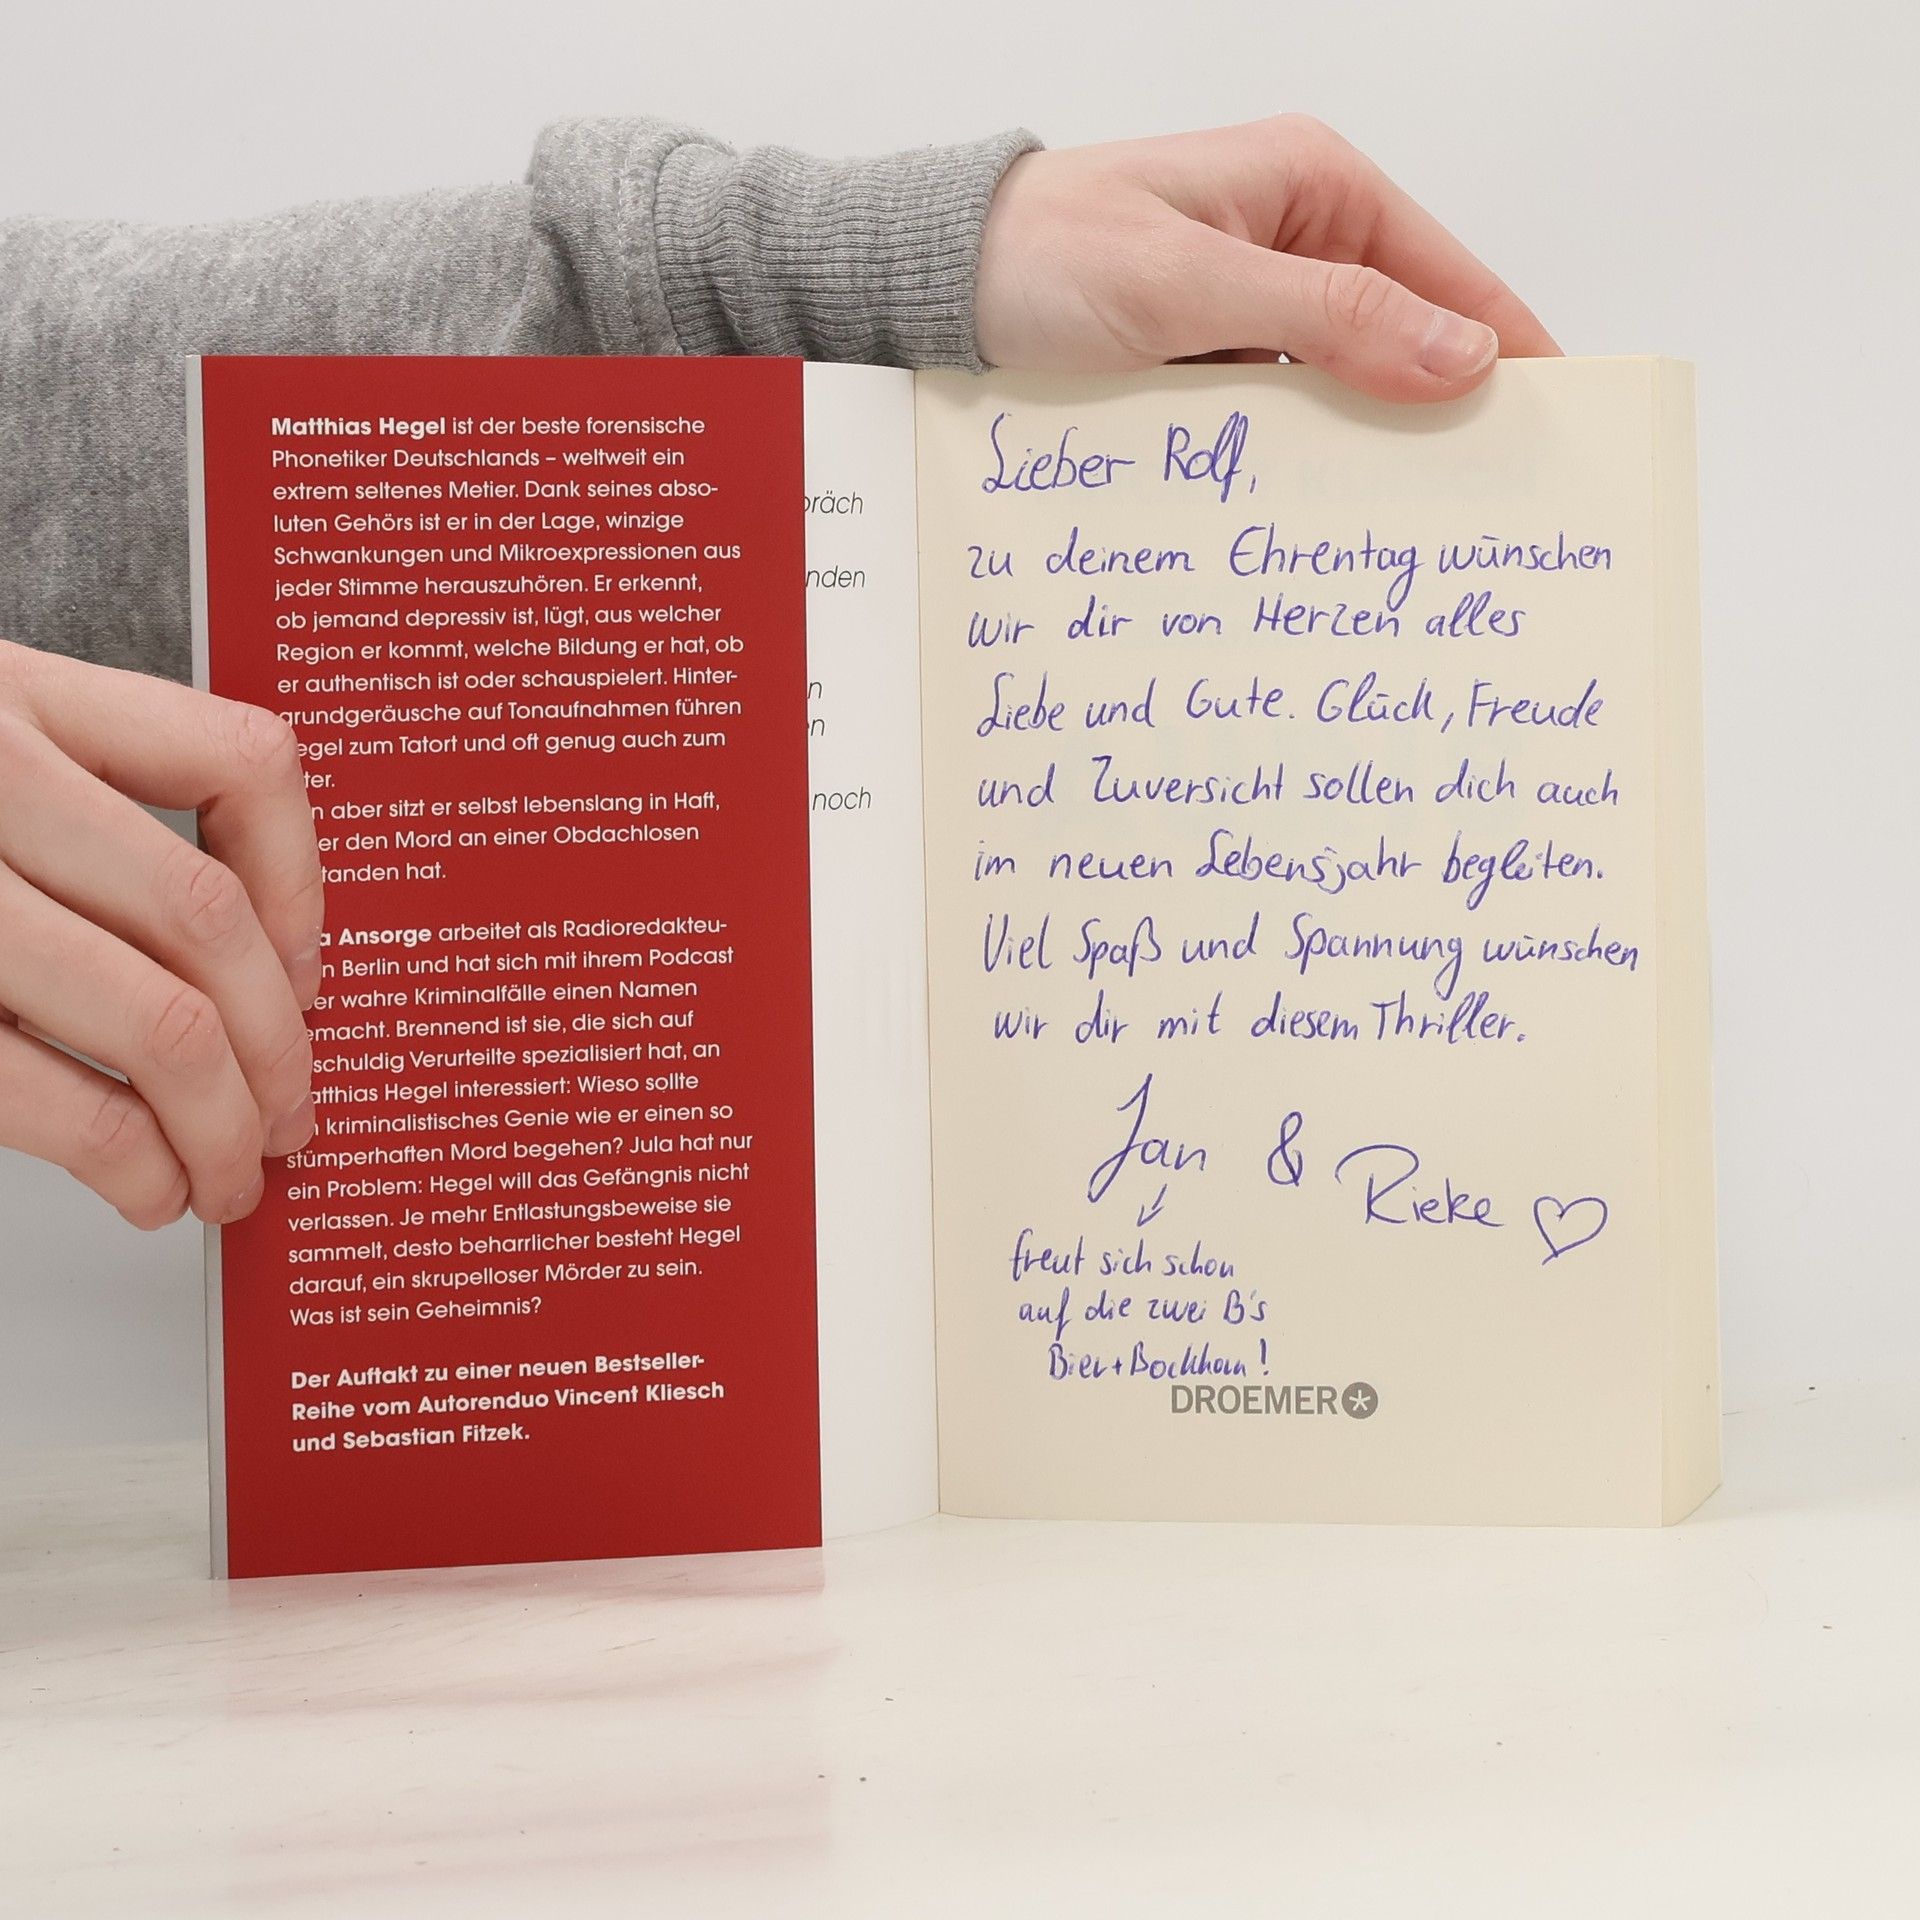 Matthias Hegel ist der beste forensische
Phonetiker Deutschlands – weltweit ein
extrem seltenes Metier. Dank seines abso-
luten Gehörs ist er in der Lage, winzige
Schwankungen und Mikroexpressionen aus
jeder Stimme herauszuhören. Er erkennt,
ob jemand depressiv ist, lügt, aus welcher
Region er kommt, welche Bildung er hat, ob
er authentisch ist oder schauspielert. Hinter-
grundgeräusche auf Tonaufnahmen führen
egel zum Tatort und oft genug auch zum
ter.
n aber sitzt er selbst lebenslang in Haft,
er den Mord an einer Obdachlosen
tanden hat.
a Ansorge arbeitet als Radioredakteu-
n Berlin und hat sich mit ihrem Podcast
er wahre Kriminalfälle einen Namen
emacht. Brennend ist sie, die sich auf
schuldig Verurteilte spezialisiert hat, an
atthias Hegel interessiert: Wieso sollte
n kriminalistisches Genie wie er einen so
stümperhaften Mord begehen? Jula hat nur
ein Problem: Hegel will das Gefängnis nicht
verlassen. Je mehr Entlastungsbeweise sie
sammelt, desto beharrlicher besteht Hegel
darauf, ein skrupelloser Mörder zu sein.
Was ist sein Geheimnis?
Der Auftakt zu einer neuen Bestseller-
Reihe vom Autorenduo Vincent Kliesch
und Sebastian Fitzek.
präch
nden
n
n
noch
Lieber Rolf,
zu deinem Ehrentag wünschen
wir dir von Herzen alles
Liebe und Gute. Glück, Freude
und Zuversicht sollen dich auch
im neuen Lebensjahr begleiten.
Viel Spaß und Spannung wünschen
wir dir mit diesem Thriller.
Jan & Rieke
freut sich schon
auf die zwei B's
Bier + Bockhorn!
DROEMER